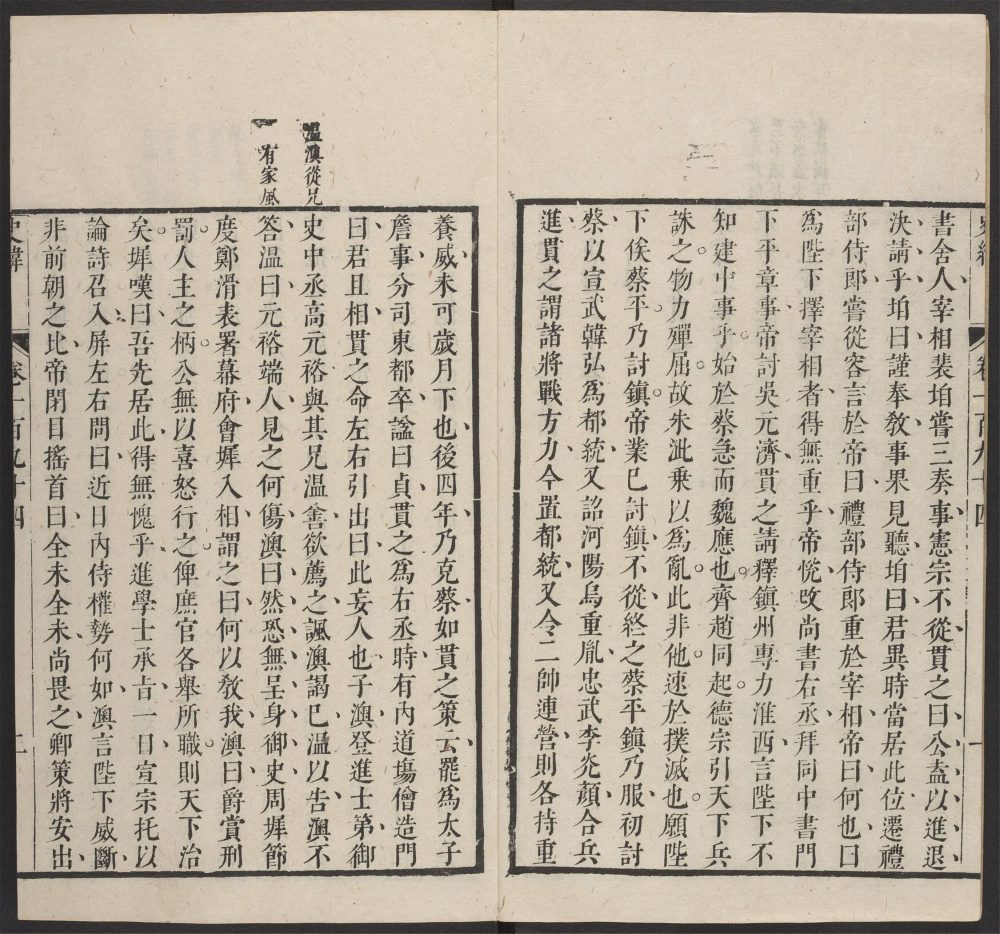 書舍人宰相裴垍嘗三奏事憲宗不從貫之曰公盍以進退
決請乎垍曰謹奉敎事果見聽垍曰君異時當居此位遷禮
部侍郎嘗從容言於帝曰禮部侍郎重於宰相帝曰何也曰
爲陛下擇宰相者得無重乎帝悅改尚書右丞拜同中書門
下平章事帝討吳元濟貫之請釋鎮州專力淮西言陛下不
知建中事乎始於蔡急而魏應也齊趙同起德宗引天下兵
誅之物力殫屈故朱泚乗以爲亂此非他速於撲滅也願陛
下俟蔡平乃討鎮帝業巳討鎮不從終之蔡平鎮乃服初討
蔡以宣武韓弘爲都統又詔河陽烏重胤忠武李光顏合兵
進貫之謂諸將戰方力今置都統又令二帥連營則各持重
養威未可歲月下也後四年乃克蔡如貫之策云罷爲太子
詹事分司東都卒諡曰貞貫之爲右丞時有內道塲僧造門
曰君且相貫之命左右引出曰此妄人也子澳登進士第御
史中丞高元裕與其兄溫善欲薦之諷澳謁巳溫以告澳不
答溫曰元裕端人見之何傷澳曰然恐無呈身御史周墀節
度鄭滑表署幕府會墀入相謂之曰何以敎我澳曰爵賞刑
罰人主之柄公無以喜怒行之俾庶官各舉所職則天下治
矣墀嘆曰吾先居此得無愧乎進學士承旨一日宣宗托以
論詩召入屏左右問曰近日內侍權勢何如澳言陛下威斷
非前朝之比帝閉目搖首曰全未全未尚畏之卿策將安出
溫澳從兄
有家風
卷一百九十四
一
史緯
卷一百九十四
二